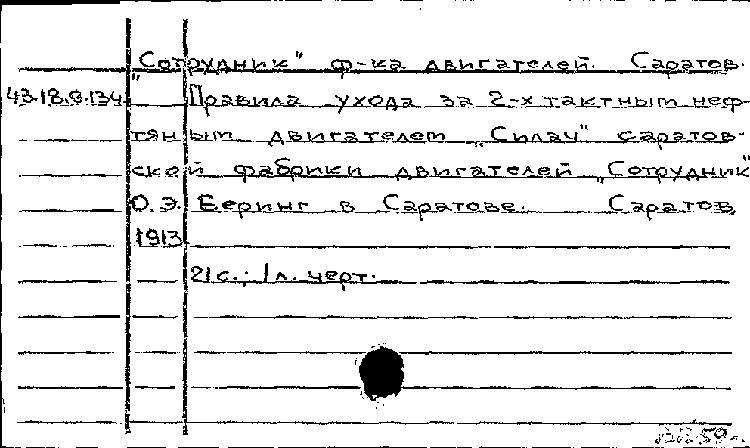 „Сотрудник" ф-ка двигателей. Саратов.
43.18.9.134 Правила ухода за 2-х тактным неф-
тяным двигателем „Силач" саратов-
ской фабрики двигателей „Сотрудник"
О.Э. Беринг в Саратове. Саратов,
1913
21 с.; 1 л. черт.